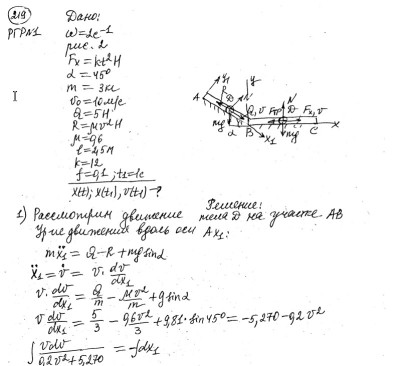 219
Дано:
РГР№1
ω=2с⁻¹
рис. 2
Fx = kt²Н
α = 45°
m = 3кг
v₀=16м/с
Q = 5Н
R = μv²Н
μ=0,6
l = 4,5м
k = 12
f=0,1; t₂=1с
x(t); x(t₁), v(t₁) - ?
A
y₁
N
y
R
D
Q, v
mg
α
B
x₁
Fтр
N
D
Fx, v
mg
C
x
Решение:
1) Рассмотрим движение тела D на участке АВ
Ур-ие движения вдоль оси Ax₁:
mẍ₁ = Q - R + mg sinα
ẍ₁ = v̇ = v · dv/dx₁
v · dv/dx₁ = Q/m - μv²/m + g sinα
v dv/dx₁ = 5/3 - 0,6v²/3 + 9,81·sin45° = -5,270 - 0,2v²
∫ vdv/(0,2v²+5,270) = -∫dx₁